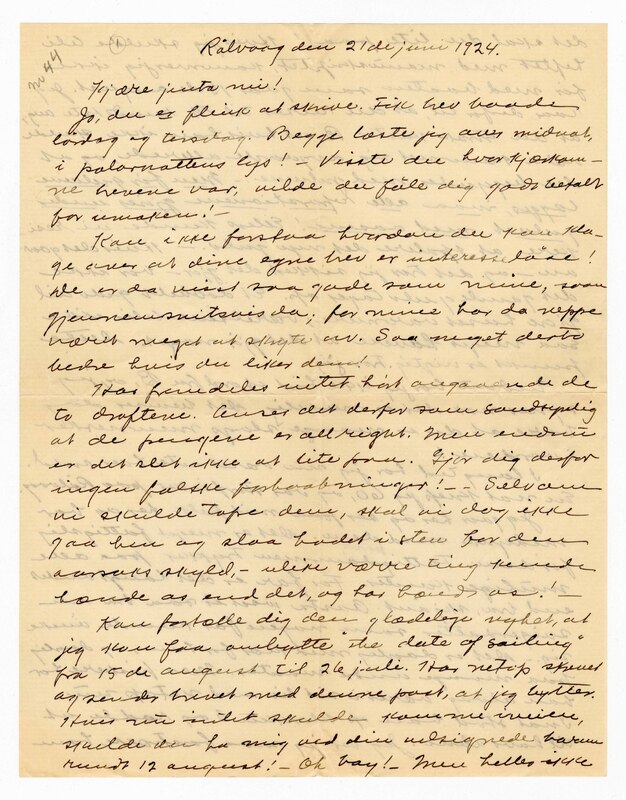 M44
Rålvaag den 21de juni 1924.
Kjære junta mi!
Jo, du er flink at skrive. Fik brev baade
lördag og tirsdag. Begge læste jeg over midnat,
i polarnattens lys! – Visste du hvor kjærkom-
ne brevene var, vilde du föle dig godt betalt
for umaken! –
Kan ikke forstaa hvordan du kan kla-
ge over at dine egne brev er interesselöse!
De er da visst saa gode som mine, saan
gjennemsnitsvis da; for mine har da neppe
været meget at skryte av. Saa meget desto
bedre hvis du liker dem!
Har fremdeles intet hört angaaende de
to draftene. Anser det derfor som sandsynlig
at de pengene er all right. Men endnu
er det slet ikke at lite paa. Gjör dig derfor
ingen falske forhaabninger! – – Selv om
vi skulde tape dem, skal vi dog ikke
gaa hen og slaa hodet i sten for den
aarsaks skyld, – ulike værre ting kunde
hænde os end det, og har hændt os! –
Kan fortælle dig den glædelige nyhet, at
jeg kan faa ombytte "the date of sailing"
fra 15de august til 26 juli. Har netop skrevet
og sender brevet med denne post, at jeg bytter.
Hvis nu intet skulde komme iveien,
skulde du ha mig ved din velsignede barm
rundt 12 august! – Oh boy! – Men heller ikke